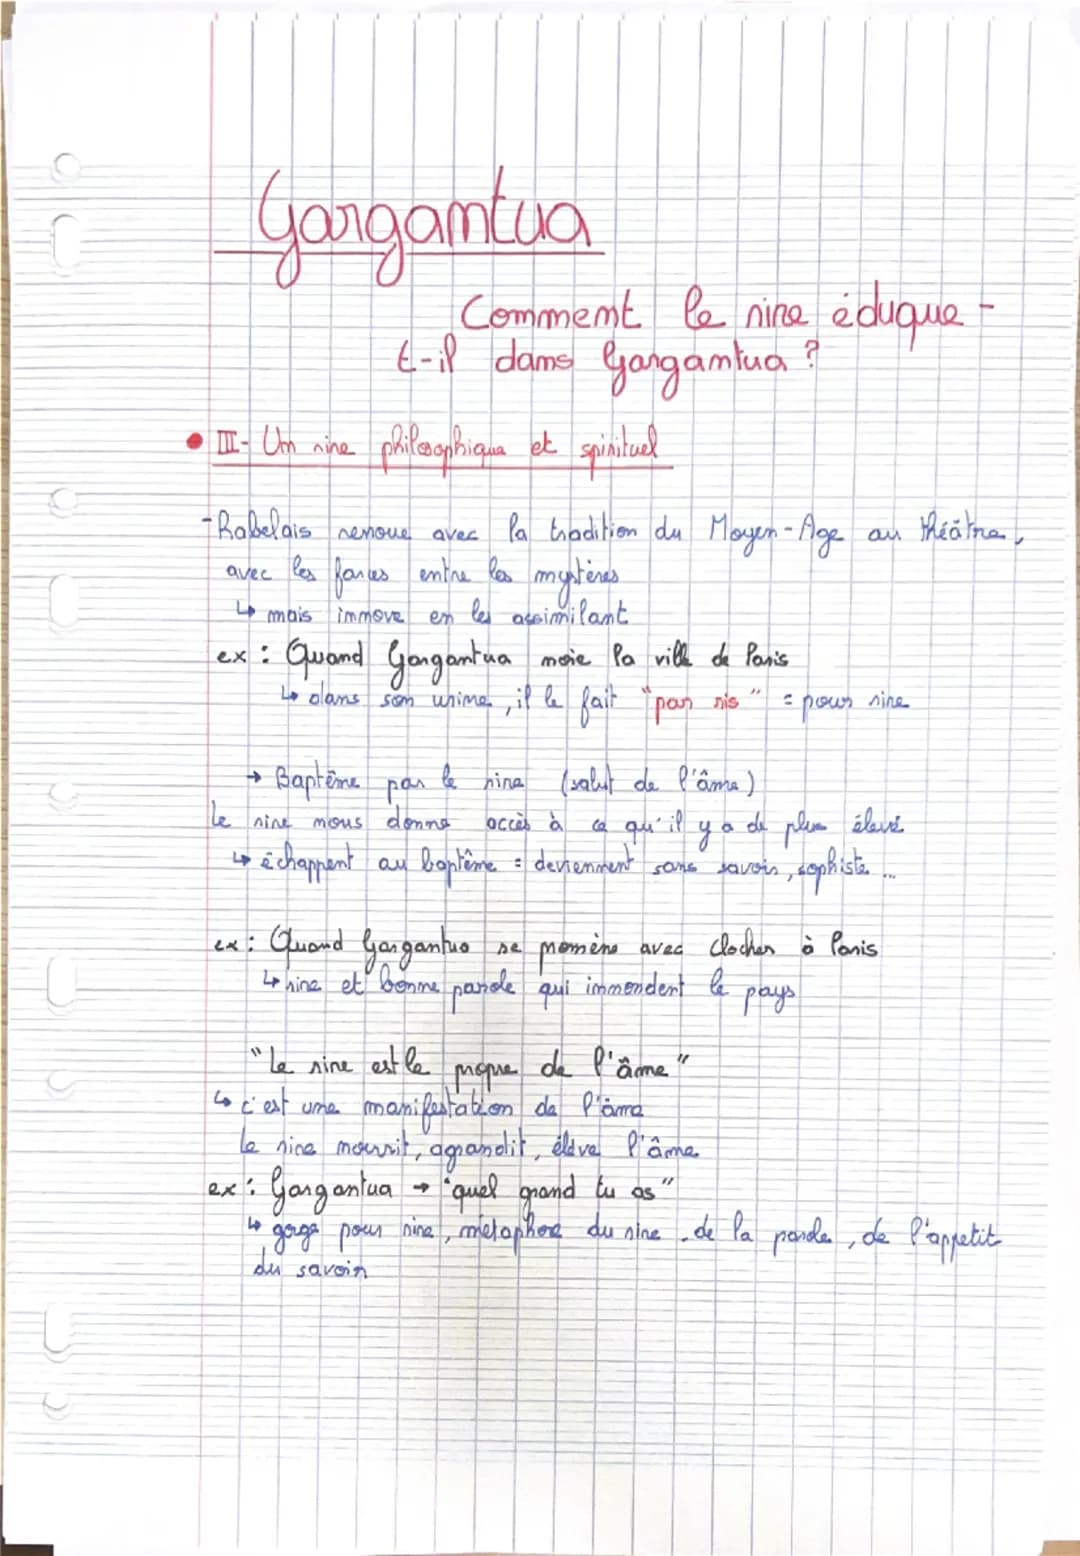 Gargantua
Comment le rire éduque-
t-il dans Gargantua ?
• III- Un rire philosophique et spirituel
- Rabelais renoue avec la tradition du Moyen-Age au théâtre,
avec les farces entre les mystères
↳ mais innove en les assimilant
ex : Quand Gargantua noie la ville de Paris
↳ dans son urine, il le fait "par ris" = pour rire
→ Baptême par le rire (salut de l'âme)
le rire nous donne accès à ce qu'il y a de plus élevé
↳ échappent au baptême = deviennent sans savoir, sophiste ...
ex : Quand Gargantua se promène avec clocher à Paris
↳ rire et bonne parole qui innondent le pays
"le rire est le propre de l'âme"
↳ c'est une manifestation de l'âme
le rire nourrit, agrandit, élève l'âme
ex : Gargantua → "quel grand tu as"
↳ gorge pour rire, métaphore du rire, de la parole, de l'appetit
du savoir